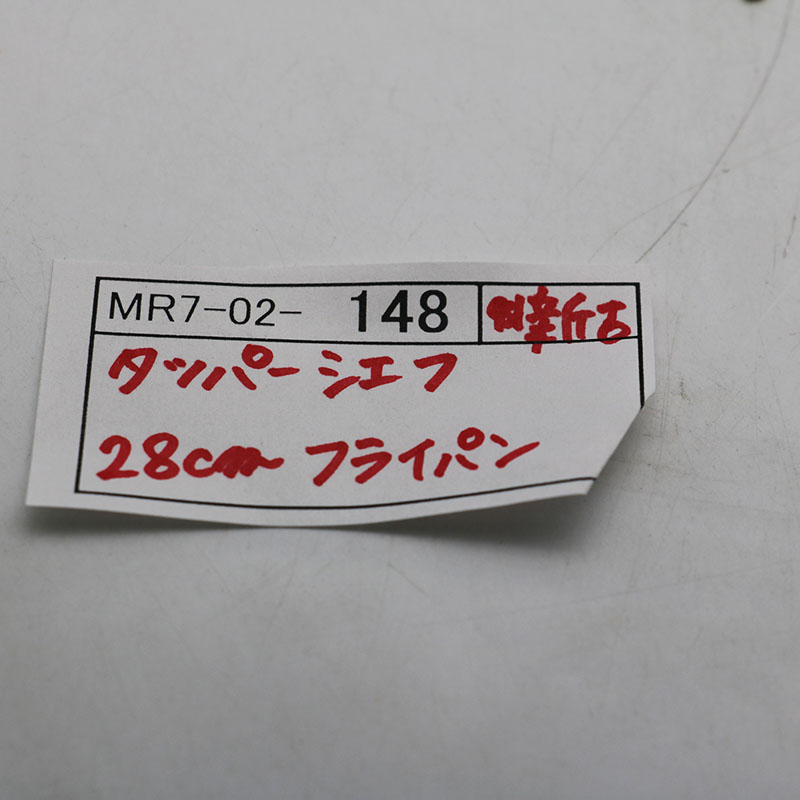 MR7-02- 148 新古
タッパーシェフ
28cm フライパン